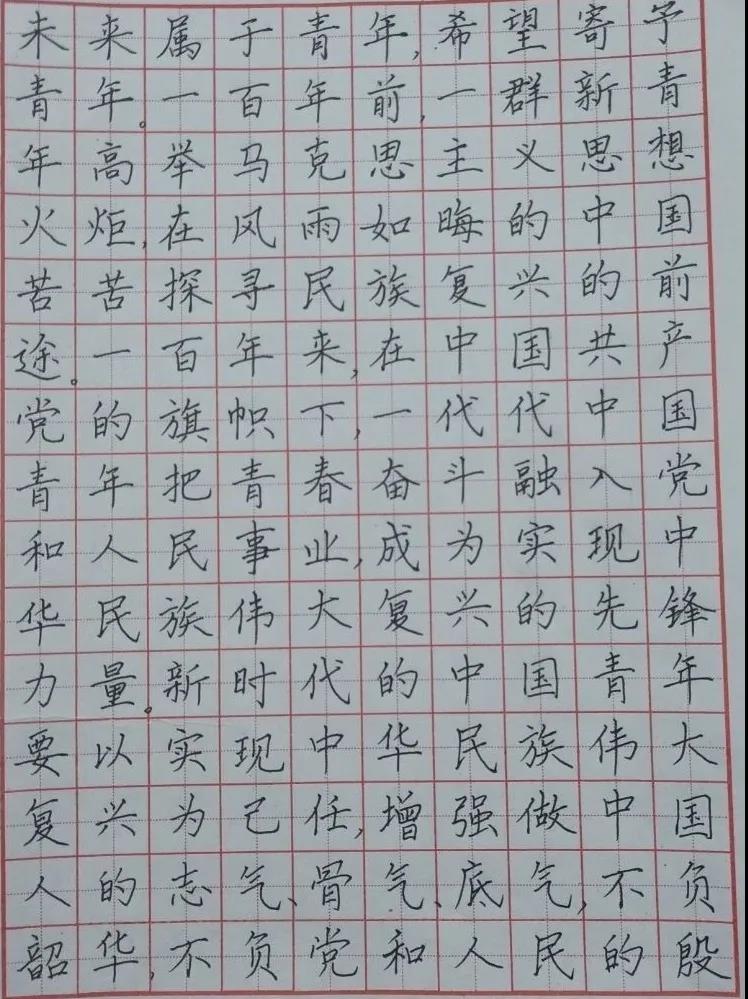 未来属于青年,希望寄予
青年。一百年前,一群新青
年高举马克思主义思想
火炬,在风雨如晦的中国
苦苦探寻民族复兴的前
途。一百年来,在中国共产
党的旗帜下,一代代中国
青年把青春奋斗融入党
和人民事业,成为实现中
华民族伟大复兴的先锋
力量。新时代的中国青年
要以实现中华民族伟大
复兴为己任,增强做中国
人的志气、骨气、底气,不负
韶华,不负党和人民的殷